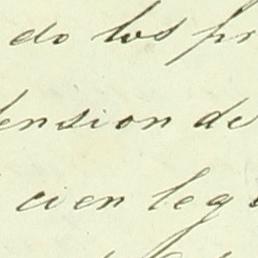 do los pr
ension de
cien leg